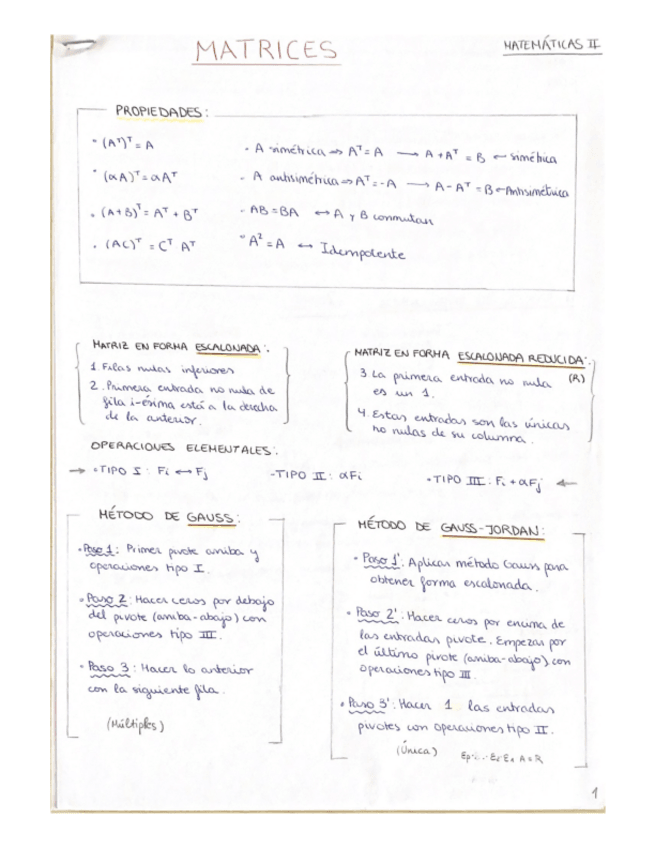 MATRICES
MATEMÁTICAS II
PROPIEDADES:
· (Aᵀ)ᵀ = A
· (αA)ᵀ = αAᵀ
· (A+B)ᵀ = Aᵀ + Bᵀ
· (AC)ᵀ = Cᵀ Aᵀ
· A simétrica ⇒ Aᵀ = A → A + Aᵀ = B ← simétrica
· A antisimétrica ⇒ Aᵀ = -A → A - Aᵀ = B ← Antisimétrica
· AB = BA ↔ A y B conmutan
· A² = A ↔ Idempotente
MATRIZ EN FORMA ESCALONADA:
1. Filas nulas inferiores
2. Primera entrada no nula de
fila i-ésima está a la derecha
de la anterior.
MATRIZ EN FORMA ESCALONADA REDUCIDA:
(R)
3 La primera entrada no nula
es un 1.
4. Estas entradas son las únicas
no nulas de su columna.
OPERACIONES ELEMENTALES:
→ · TIPO I: Fi ↔ Fj
- TIPO II: αFi
· TIPO III: Fi + αFj ←
MÉTODO DE GAUSS:
· Paso 1: Primer pivote arriba y
operaciones tipo I.
· Paso 2: Hacer ceros por debajo
del pivote (arriba-abajo) con
operaciones tipo III.
· Paso 3: Hacer lo anterior
con la siguiente fila.
(Múltiples)
MÉTODO DE GAUSS-JORDAN:
· Paso 1': Aplicar método Gauss para
obtener forma escalonada.
· Paso 2': Hacer ceros por encima de
las entradas pivote. Empezar por
el último pivote (arriba-abajo) con
operaciones tipo III.
· Paso 3': Hacer 1 las entradas
pivotes con operaciones tipo II.
(Única)
Ep ... E2 E1 A = R
1